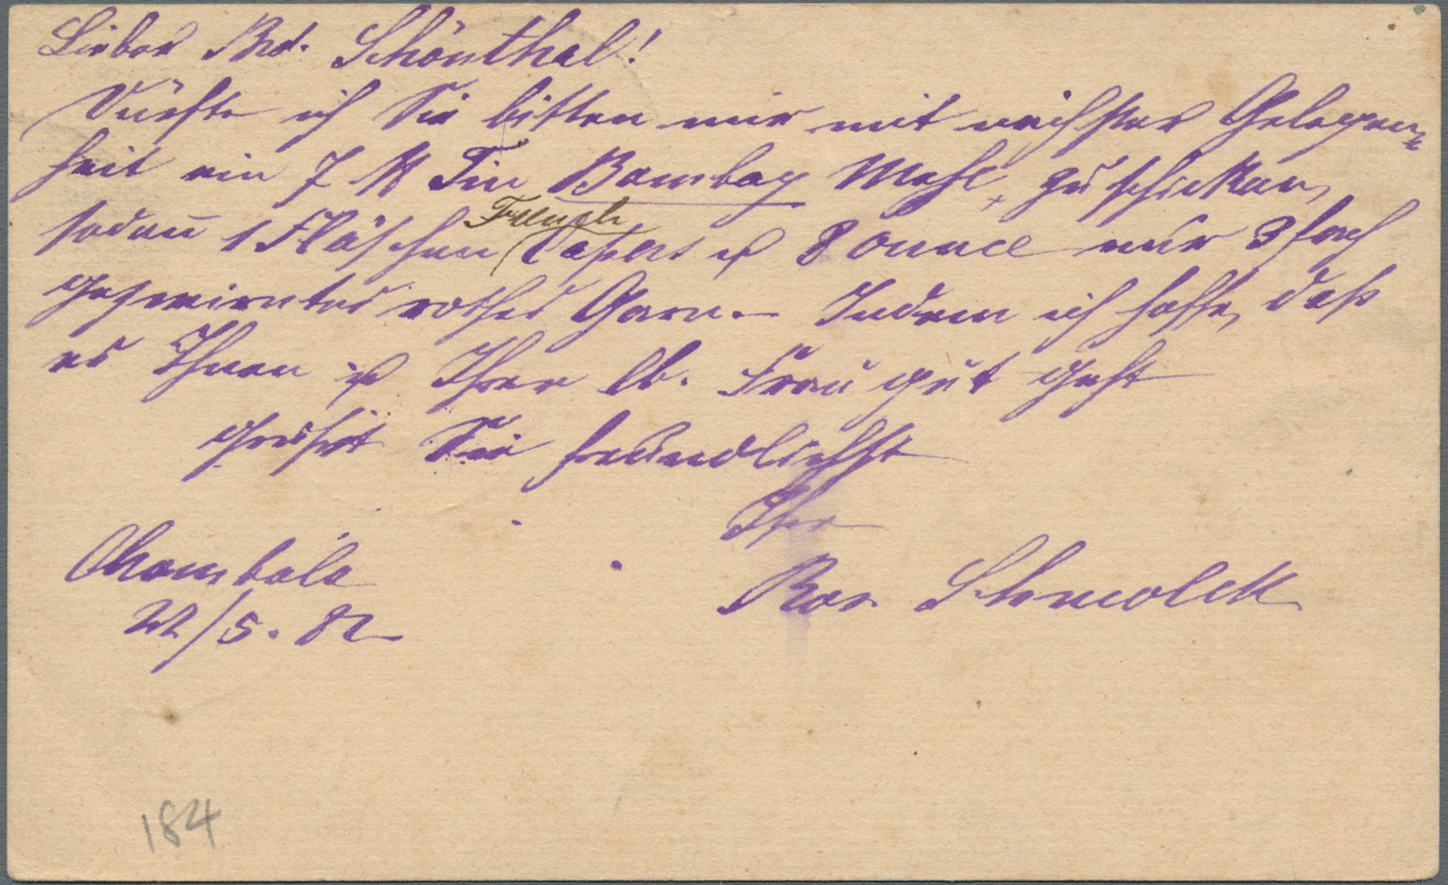 Lieber Br. Schönthal!
Dürfte ich Sie bitten mir mit nächster Gelegen=
heit ein 7 ℔ Tin Bombay Mehl, zu schicken,
sodann 1 Fläschchen French Capers u 8 Ounce nur 3fach
gezwirntes rothes Garn. – Indem ich hoffe, daß
es Ihnen u Ihrer lb. Frau gut geht
grüßt Sie freundlichst
Ihre
Ros. Schmolck
Chombala
22/5. 82
184